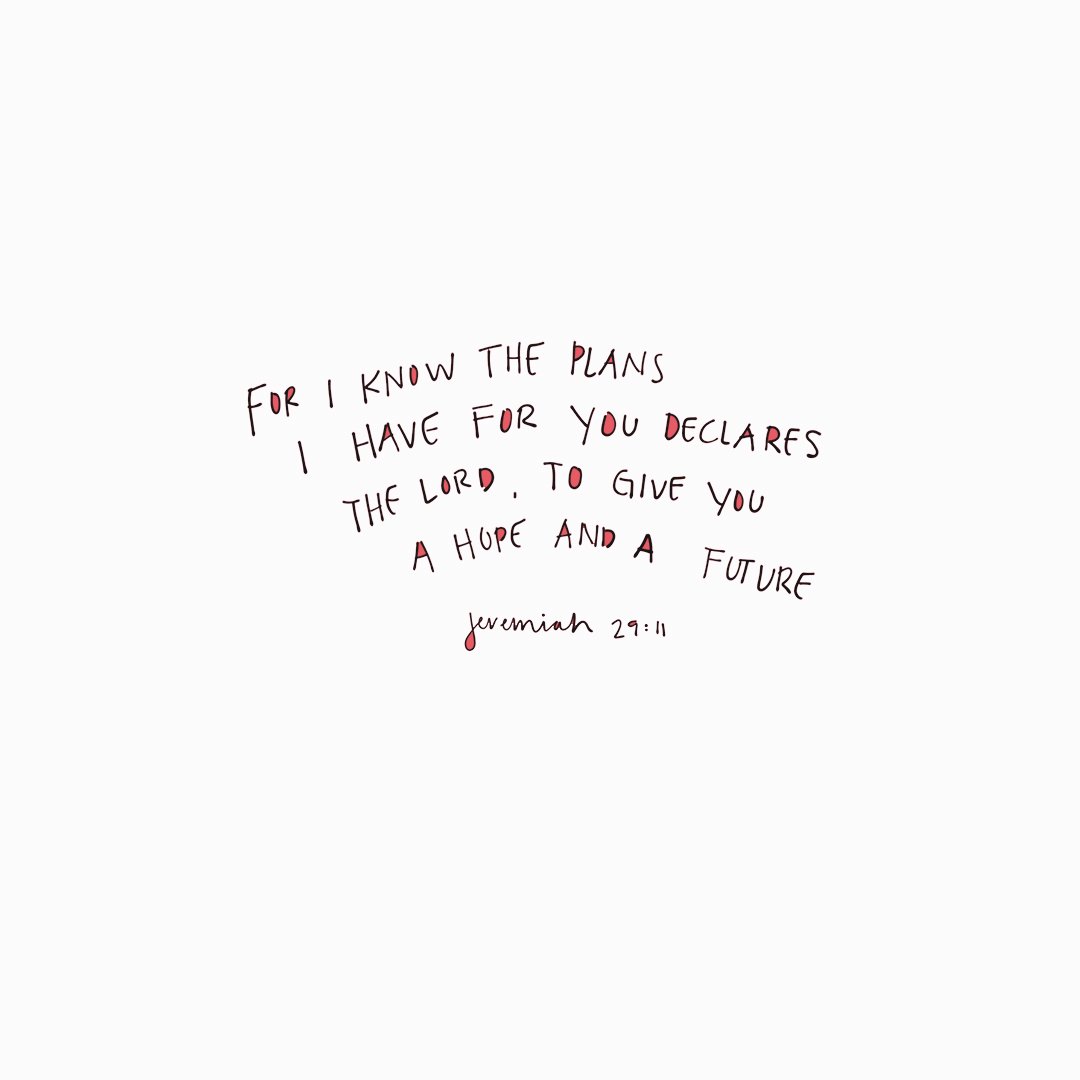 FOR I KNOW THE PLANS
I HAVE FOR YOU DECLARES
THE LORD, TO GIVE YOU
A HOPE AND A FUTURE
Jeremiah 29:11